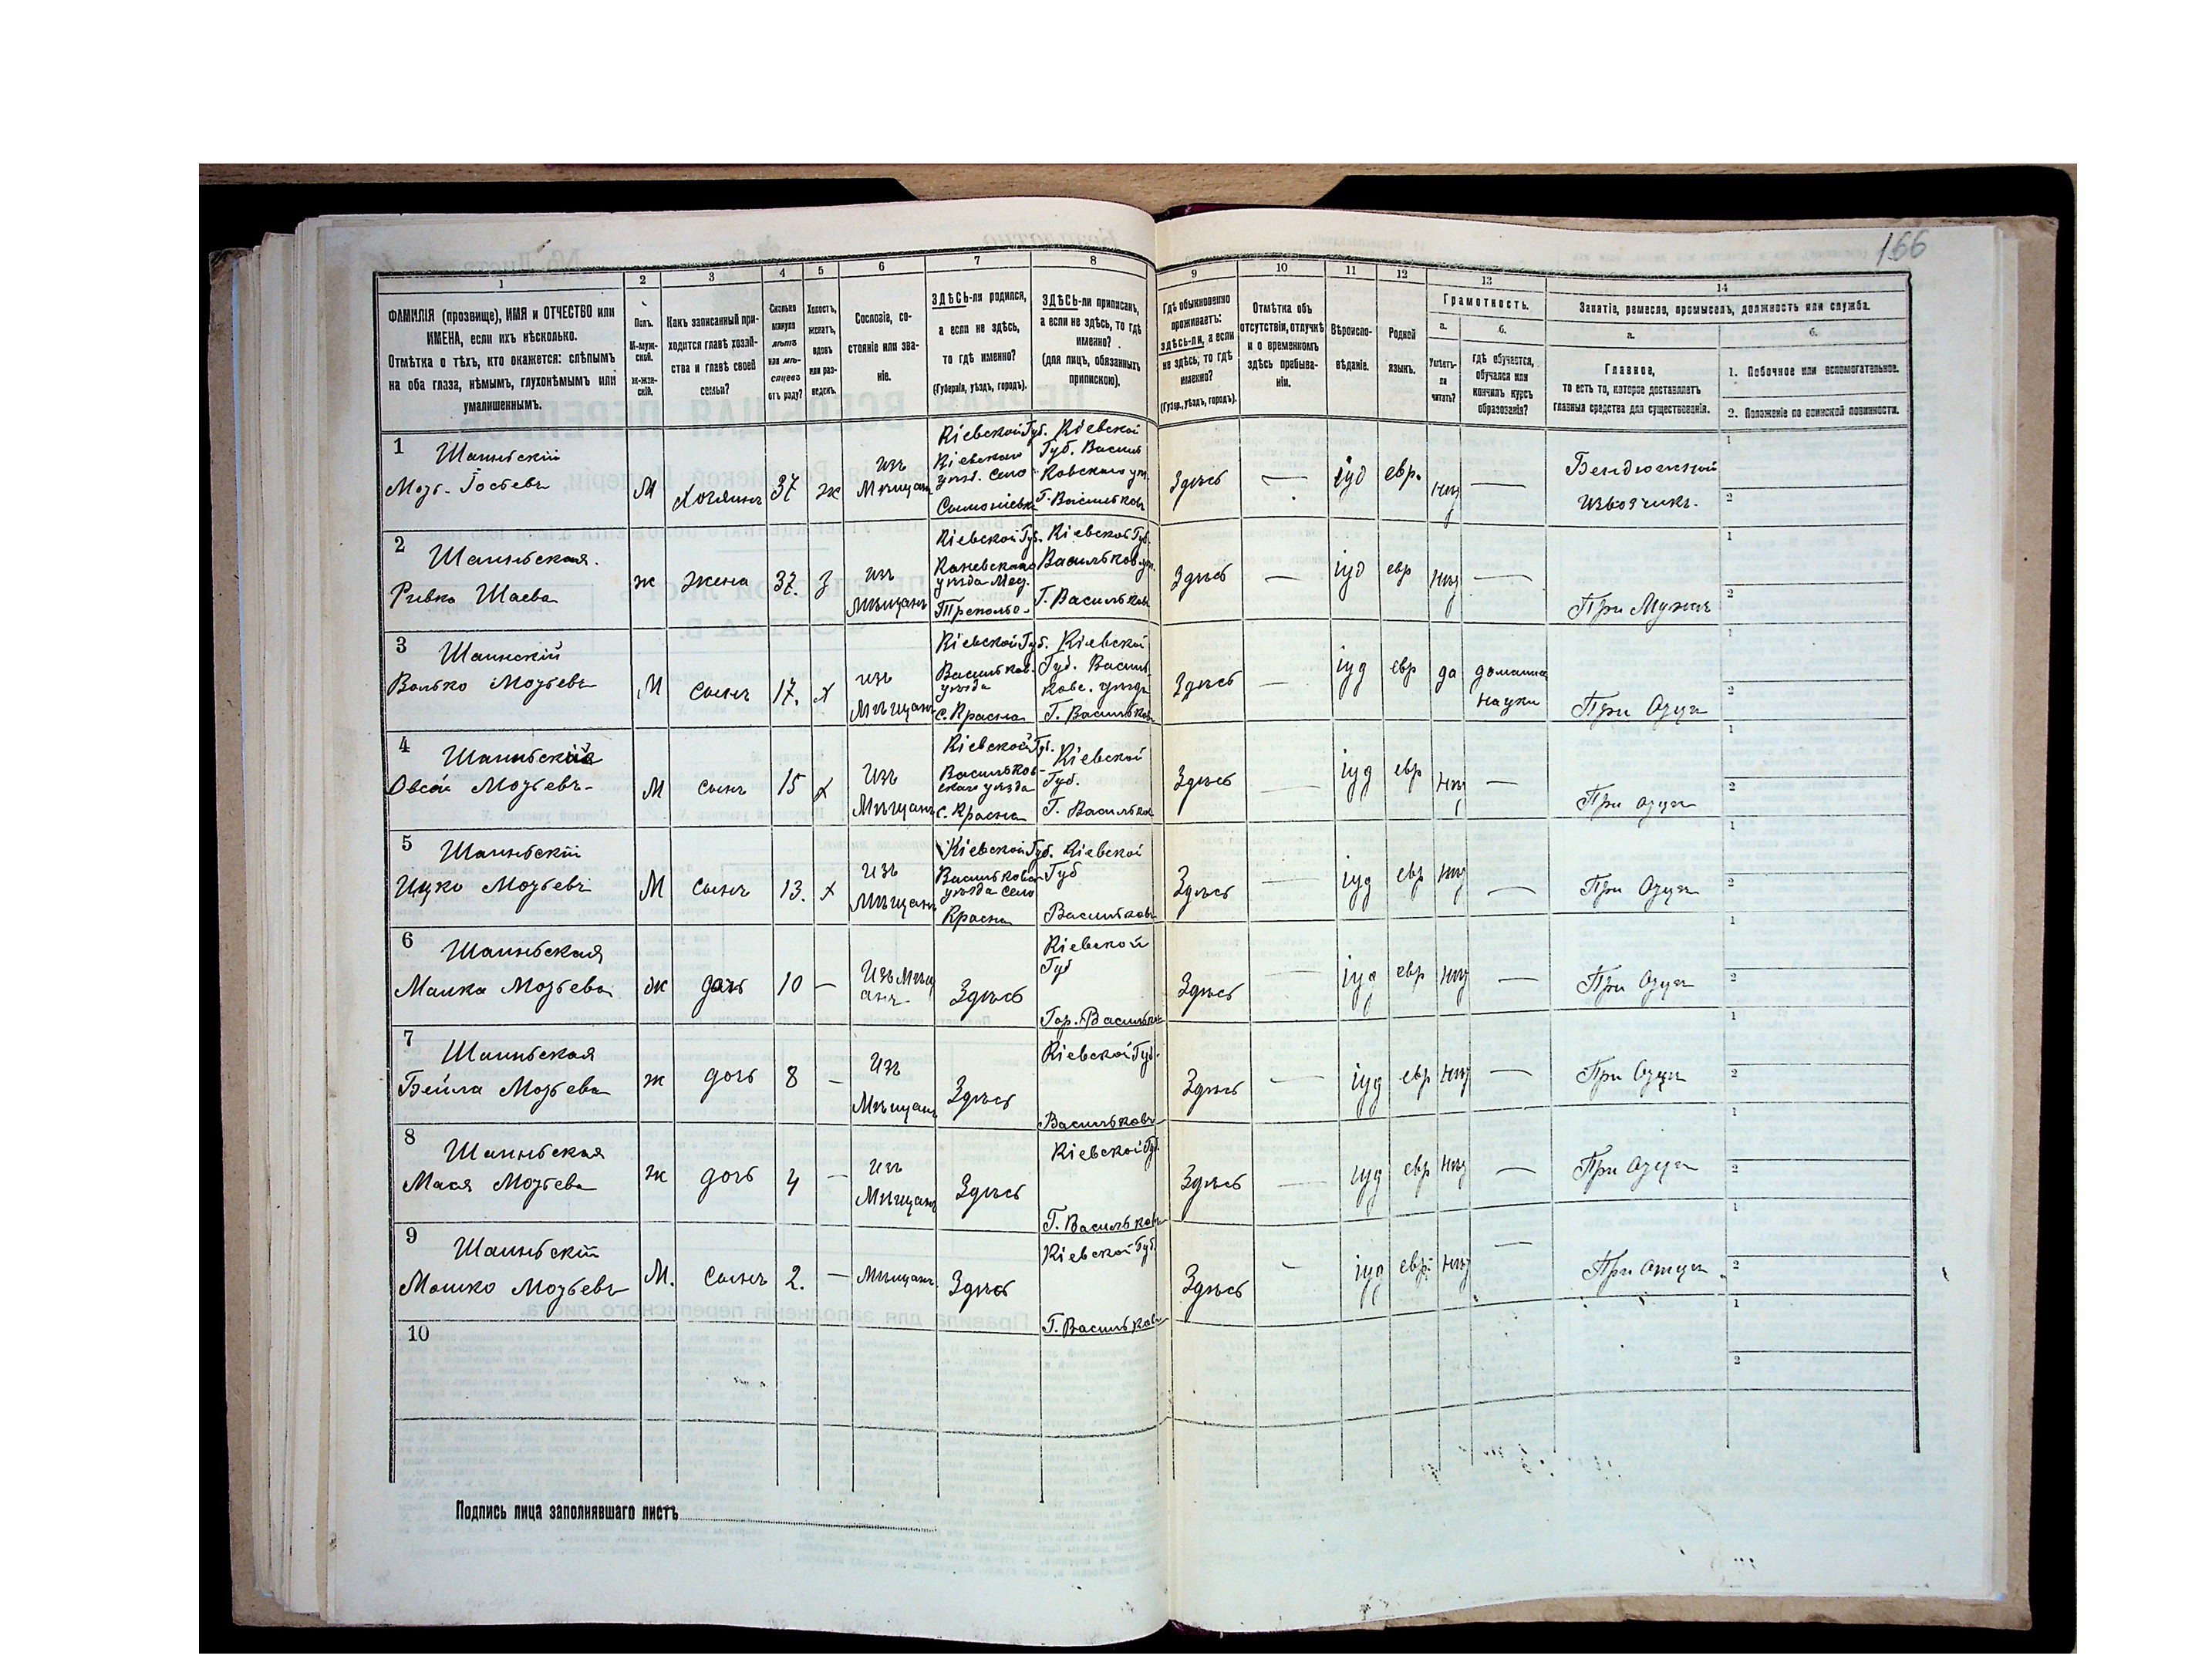 166
1
2
3
4
5
6
7
8
9
10
11
12
13
14
ФАМИЛІЯ (прозвище), ИМЯ и ОТЧЕСТВО или
ИМЕНА, если ихъ нѣсколько.
Отмѣтка о тѣхъ, кто окажется: слѣпымъ
на оба глаза, нѣмымъ, глухонѣмымъ или
умалишеннымъ.
Полъ.
М-муж-
ской.
ж-жен-
скій.
Какъ записанный при-
ходится главѣ хозяй-
ства и главѣ своей
семьи?
Сколько
минуло
лѣтъ
или мѣ-
сяцевъ
отъ роду?
Холостъ,
женатъ,
вдовъ
или раз-
веденъ.
Сословіе, со-
стояніе или зва-
ніе.
ЗДѢСЬ-ли родился,
а если не здѣсь,
то гдѣ именно?
(Губернія, уѣздъ, городъ).
ЗДѢСЬ-ли приписанъ,
а если не здѣсь, то гдѣ
именно?
(для лицъ, обязанныхъ
припискою).
Гдѣ обыкновенно
проживаетъ:
здѣсь-ли, а если
не здѣсь, то гдѣ
именно?
(Губер., уѣздъ, городъ).
Отмѣтка объ
отсутствіи, отлучкѣ
и о временномъ
здѣсь пребыва-
ніи.
Вѣроиспо-
вѣданіе.
Родной
языкъ.
Грамотность.
а.
б.
Умѣетъ-
ли
читать?
гдѣ обучается,
обучался или
кончилъ курсъ
образованія?
Занятіе, ремесло, промыселъ, должность или служба.
а.
б.
Главное,
то есть то, которое доставляетъ
главныя средства для существованія.
1. Побочное или вспомогательное.
2. Положеніе по воинской повинности.
1 Шаинскій
М
37
ж
Изъ
Мѣщанъ
Кіевской Губ.
Кіевскаго
уѣзд. Село
Кіевской
Губ. Василь
ковскаго уѣз.
Г. Васильковъ
Здѣсь
—
іуд
евр.
нѣт
—
Извозчикъ.
1
2
2 Шаинская.
Ривка Шаева
ж
Жена
37.
З
изъ
Мѣщанъ
Кіевской Губ.
Каневскаго
уѣзда Мес.
Кіевской Губ.
Васильков. уѣз.
Г. Васильковъ
Здѣсь
—
іуд
евр
нѣт
—
При Мужѣ
1
2
3 Шаинскій
Волько
М
сынъ
17.
х
изъ
Мѣщанъ
Кіевской Губ.
Васильков.
уѣзда
с. Красна
Кіевской
Губ. Василь
ковс. уѣзда
Г. Васильковъ
Здѣсь
—
іуд
евр
да
домашн.
науки
При Отцѣ
1
2
4
М
сынъ
15
х
Изъ
Мѣщанъ
Кіевской Губ.
Васильков-
скаго уѣзда
с. Красна
Кіевской
Губ.
Г. Васильков
Здѣсь
—
іуд
евр
нѣт
—
При отцѣ
1
2
5 Шаинскій
Ицко
М
сынъ
13.
х
Изъ
Мѣщанъ
Кіевской Губ.
Васильков
уѣзда село
Красна
Кіевской
Губ
Васильковъ
Здѣсь
—
іуд
евр
нѣт
—
При Отцѣ
1
2
6 Шаинская
Малка
ж
дочь
10
—
Изъ Мѣщ
анъ
Здѣсь
Кіевской
Губ
Гор. Васильков
Здѣсь
—
іуд
евр
нѣт
—
При Отцѣ
1
2
7 Шаинская
Бейла
ж
дочь
8
—
Изъ
Мѣщанъ
Здѣсь
Кіевской Губ.
Васильковъ
Здѣсь
—
іуд
евр
нѣт
—
При Отцѣ
1
2
8 Шаинская
Мася
ж
дочь
4
—
изъ
Мѣщанъ
Здѣсь
Кіевской Губ.
Г. Васильковъ
Здѣсь
—
іуд
евр
нѣт
—
При Отцѣ
1
2
9 Шаинскій
Мошко
М.
сынъ
2.
—
Мѣщанъ
Здѣсь
Кіевской Губ.
Г. Васильковъ
Здѣсь
—
іуд
евр.
нѣт
—
При Отцѣ
1
2
10
1
2
Подпись лица заполнявшаго листъ